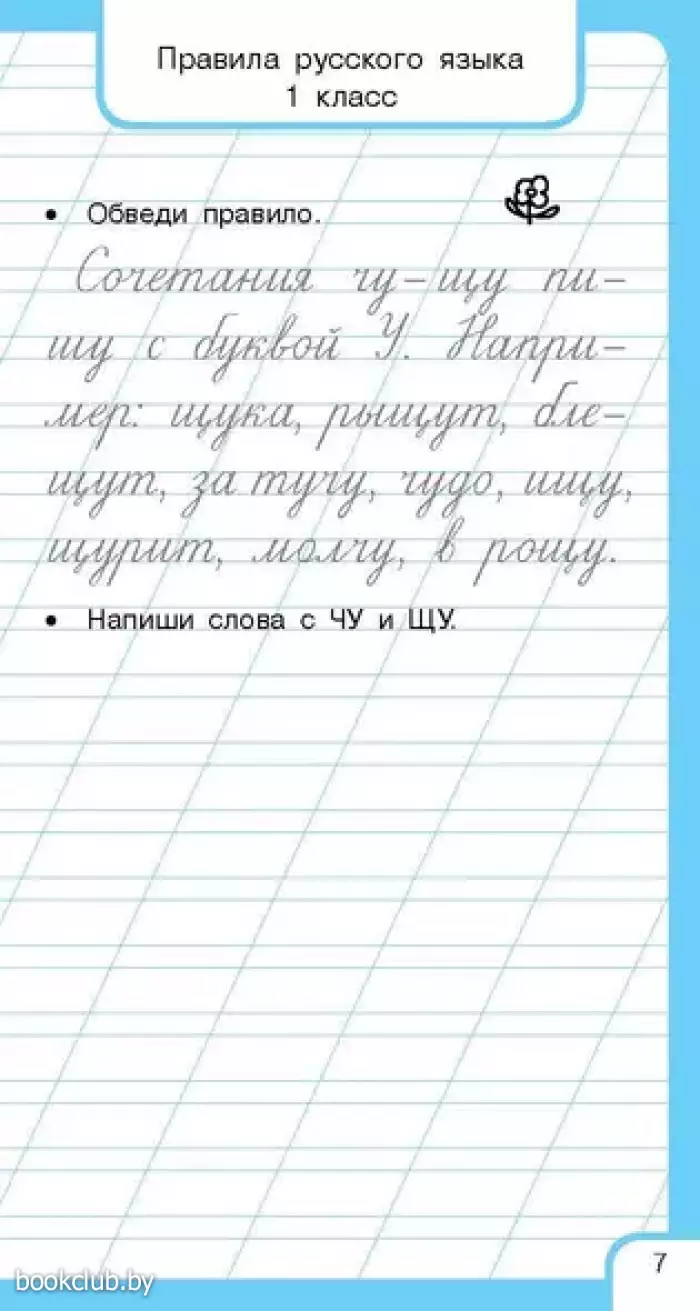 Правила русского языка
1 класс
• Обведи правило.
Сочетания чу – щу пи-
шу с буквой У. Напри-
мер: щука, рыщут, бле-
щут, за тучу, чудо, ищу,
щурит, молчу, в рощу.
• Напиши слова с ЧУ и ЩУ.
7
bookclub.by